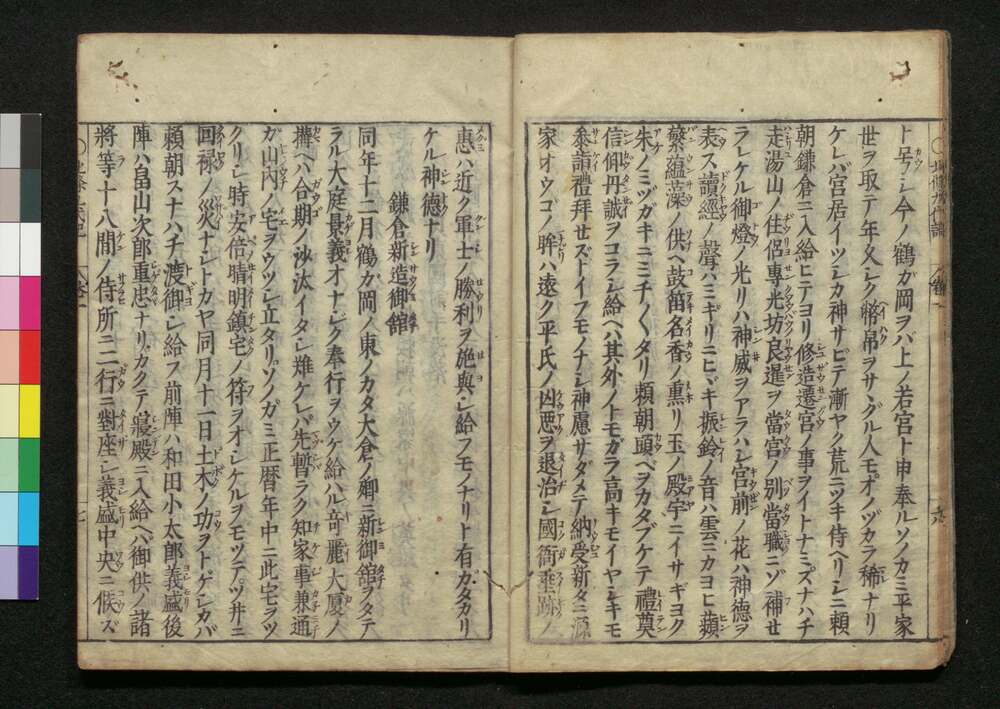 ト号シ今ノ鶴ガ岡ヲバ上ノ若宮ト申奉ルソノカミ平家
世ヲ取テ年久シク幣帛ヲサヽグル人モオノヅカラ稀ナリ
ケレバ宮居イツシカ神サビテ漸ヤク荒ニツキ侍ヘリシニ頼
朝鎌倉ニ入給ヒテヨリ修造遷宮ノ事ヲイトナミスナハチ
走湯山ノ住侶專光坊良暹ヲ當宮ノ別當職ニゾ補セ
ラレケル御燈ノ光リハ神威ヲアラハシ宮前ノ花ハ神德ヲ
表ス讀經ノ聲ハミギリニヒヾキ振鈴ノ音ハ雲ニカヨヒ蘋
蘩蘊藻ノ供ヘ鼓笛名香ノ熏リ玉ノ殿宇ニイサギヨク
朱ノミヅガキニミチ〱タリ頼朝頭ベヲカタブケテ禮奠
信仰丹誠ヲコラシ給ヘハ其外ノトモガラ高キモイヤシキモ
參詣禮拜セズトイフモノナシ神慮サダメテ納受新タニ源
家オウゴノ眸ハ遠ク平氏ノ凶悪ヲ退治シ國衙垂跡ノ
惠ハ近ク軍士ノ勝利ヲ施與シ給フモノナリト有ガタカリ
ケル神德ナリ
鎌倉新造御館
同年十二月鶴ガ岡ノ東ノカタ大倉ノ郷ニ新御舘ヲタテ
ラル大庭景義オナジク奉行ヲウケ給ハル竒麗大廈ノ
搆ヘハ合期ノ沙汰イタシ難ケレバ先暫ラク知家事兼通
ガ山内ノ宅ヲウツシ立タリソノガミ正暦年中ニ此宅ヲツ
クリシ時安倍晴明鎮宅ノ符ヲオシケルヲモツテツ井ニ
回禄ノ災ナシトカヤ同月十一日土木ノ功ヲトゲシカバ
頼朝スナハチ渡御シ給フ前陣ハ和田小太郎義盛後
陣ハ畠山次郎重忠ナリカクテ寢殿ニ入給ヘバ御供ノ諸
將等十八間ノ侍所ニ二行ニ對座シ義盛中央ニ候ズ